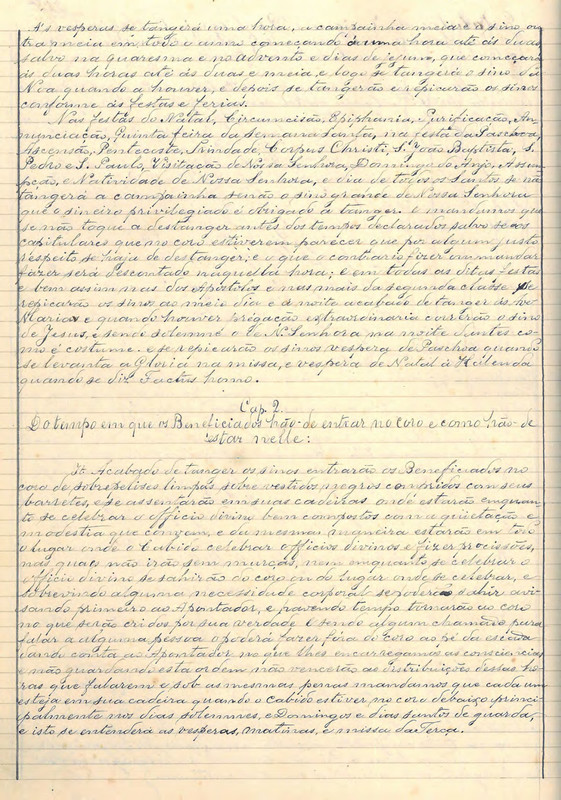 As vesperas se tangirá uma hora, a campainha meia e o sino ou
tra meia em todo o anno começando á uma hora até ás duas
salvo na quaresma e no advento e dias de jejum, que começará
ás duas horas até ás duas e meia, e logo se tangerá o sino da
Nôa quando a houver, e depois se tangerão e repicarão os sinos
conforme ás festas e ferias.
Nas festas do Natal, Circumcisão, Epiphania, Purificação, An-
nunciação, Quinta feira da Semana Santa, na festa da Paschoa,
Ascensão, Pentecoste, Trindade, Corpus Christi, S. João Baptista, S.
Pedro e S. Paulo, Visitação de Nossa Senhora, Domingo do Anjo, Assum
pção, e Natividade de Nossa Senhora, e dia de todos os Santos se não
tangerá a campainha senão o sino grande de Nossa Senhora
que o sineiro privilegiado é obrigado a tanger. E mandamos que
se não toque a destanger antes dos tempos declarados salvo se aos
capitulares que no coro estiverem parecer que por algum justo
respeito se haja de destanger; e o que o contrario fizer ou mandar
fazer será descontado naquella hora; e em todas as ditas festas
e bem assim nas dos Apostolos e nas mais da segunda classe se
repicarão os sinos ao meio dia e á noite acabado de tanger ás Ave
Marias e quando houver prégação extraordinaria correrão o sino
de Jesus, e sendo solemne o de N. Senhora na noite dantes co-
mo é costume. e se repicarão os sinos vespera de Paschoa quando
se levanta a Gloria na missa, e vespera de Natal á Kalenda
quando se diz Factus homo.
Cap. 2.
Do tempo em que os Beneficiados hão-de entrar no coro e como hão-de
estar nelle:
It. Acabado de tanger os sinos entrarão os Beneficiados no
coro de sobrepelises limpas, sobre vestidos negros compridos com seus
barretes, e se assentarão em suas cadeiras onde estarão emquan-
to se celebrar o Officio divino bem compostos com a quietação e
modestia que convem, e da mesma maneira estarão em todo
o lugar onde o Cabido celebrar officios divinos e fizer procissões,
nas quaes não irão sem murças, nem emquanto se celebrar o
officio divino se sahirão do coro ou do lugar onde se celebrar, e
sobrevindo alguma necessidade corporal se poderão sahir avi-
sando primeiro ao Apontador, e havendo tempo tornarão ao coro
no que serão cridos por sua verdade. E sendo algum chamado para
falar a alguma pessoa o poderá fazer fóra do coro ao pé da escada
dando conta ao Apontador no que lhes encarregamos as consciencias,
e não guardando esta ordem não vencerão as distribuições dessas ho-
ras que faltarem e sob as mesmas penas mandamos que cada um
esteja em sua cadeira quando o Cabido estiver no coro debaixo princi-
palmente nos dias solemnes, e Domingos e dias santos de guarda,
e isto se entenderá as vesperas, matinas, e missa da Terça.